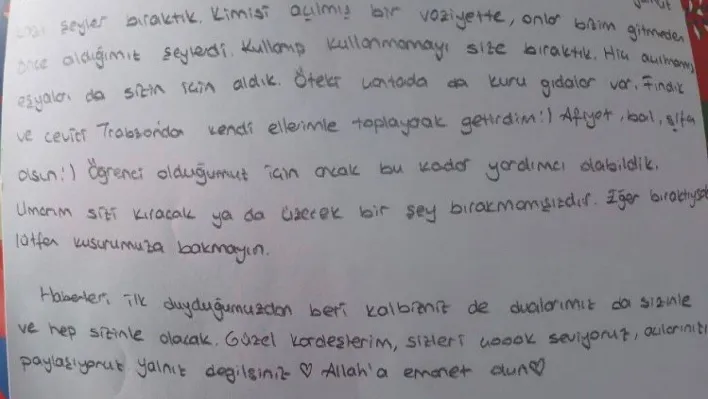 şeyler bıraktık. Kimisi açılmış bir vaziyette, onlar bizim gitmeden
önce aldığımız şeylerdi. Kullanıp kullanmamayı size bıraktık. Hiç açılmamış
eşyaları da sizin için aldık. Öteki çantada da kuru gıdalar var. Fındık
ve cevizi Trabzondan kendi ellerimle toplayarak getirdim:) Afiyet, bal, şifa
olsun:) Öğrenci olduğumuz için ancak bu kadar yardımcı olabildik.
Umarım sizi kıracak ya da üzecek bir şey bırakmamışızdır. Eğer bıraktıysak
lütfen kusurumuza bakmayın.
Haberleri ilk duyduğumuzdan beri kalbimiz de dualarımız da sizinle
ve hep sizinle olacak. Güzel kardeşlerim, sizleri çoook seviyoruz, acılarınızı
paylaşıyoruz yalnız değilsiniz ♡ Allah'a emanet olun♡